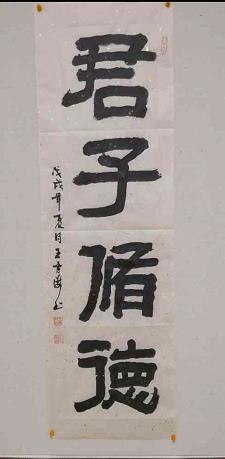 君子脩德
戊戌年夏月王海书